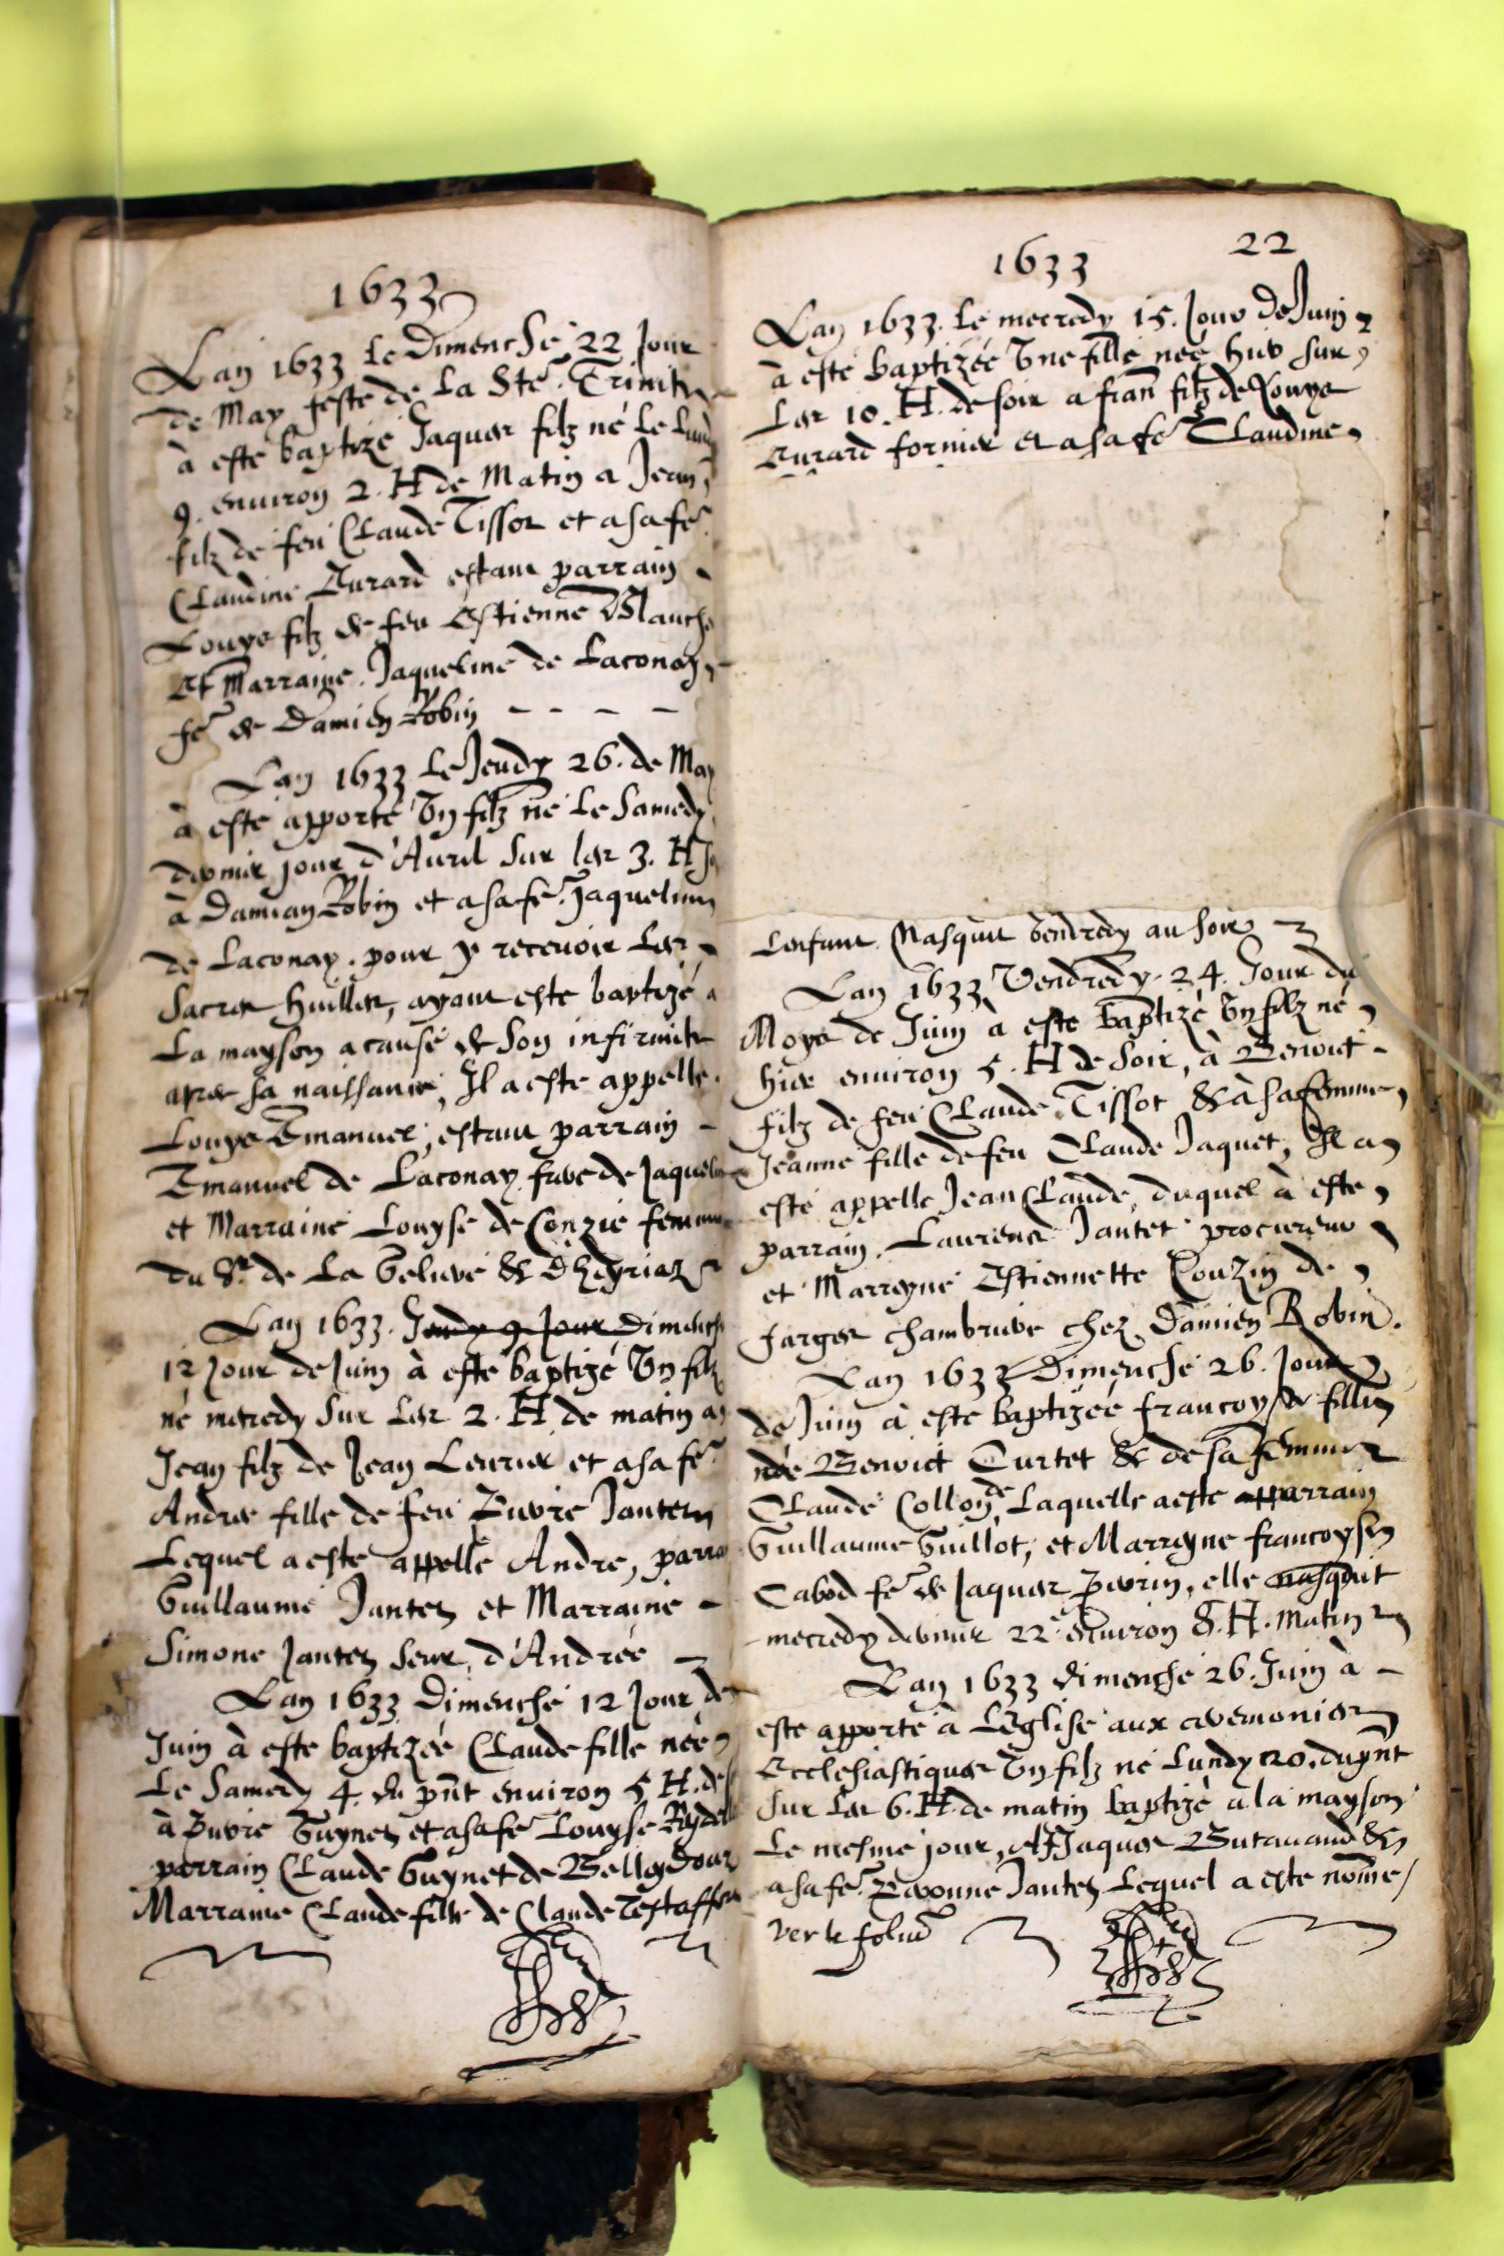 1633
Lan 1633 le Dimenche 22 Jour
de May feste de La Ste. Trinite
à este baptizé Jaques filz né le Lundy
9. environ 2. H de Matin a Jean
filz de feu Claude Tissot et a sa fe.
Claudine Curard estant parrain
Louys filz de feu Estienne Blanche
Et Marraine. Jaqueline de Laconay
fe. de Damien Robin
Lan 1633 Le Jeudy 26. de May
à este apporté Un filz né le Samedy
dernier jour d'Auril sur les 3. H
à Damian Robin et a sa fe. Jaqueline
de Laconay. pour y recevoir Les
Sacres huilles, ayant este baptizé a
La mayson a cause de son infirmite
apres sa naissance, Il a este appelle.
Louys Emanuel, estant parrain
Emanuel de Laconay frere de Jaqueline
et Marraine Louyse de Conzie femme
du Sr. de La
Lan 1633. Jeudy 9 Jour Dimenche
12 Jour de Juin à este baptizé Un filz
né mecredy sur Les 2. H de matin a
Jean filz de Jean et a sa fe.
Andree fille de feu Jantet
Lequel a este appelle Andre, parrain
Guillaume Jantet et Marraine
Simone Jantet seur d'Andrée
Lan 1633 Dimenche 12 Jour de
Juin à este baptizée Claude fille née
Le Samedy 4. du pnt environ 5 H. de
à Guynet et a sa fe. Louyse
parrain Claude Guynet de
Marraine Claude fille de Claude
1633 22
Lan 1633. Le mecredy 15. Jour de Juin
à este baptizée Une fille née hier sur
Les 10. H. de soir a fran filz de Louys
Curard fornier et a sa fe. Claudine
Lenfant Nasquit Vendredy au soir
Lan 1633 Vendredy. 24. Jour du
Moys de Juin à este baptizé Un filz né
hier environ 5. H de soir, à Benoict
filz de feu Claude Tissot & à sa femme
Jeanne fille de feu Claude Jaquet, Il a
este appelle Jean Claude, duquel à este
parrain. Laurend Jantet procureur
et Marreyne Estiennette Couzin de
Jarges chambriere chez Damien Robin.
Lan 1633 Dimenche 26. Jour
de Juin à este baptizée francoyse fille
née Benoict Curtet & de sa femme
Claude Collon de Laquelle a este apparrain
Guillaume Guillot, et Marreyne francoyse
Cabod fe. de Jaques Perrin, elle nasquit
mecredy dernier 22. environ 8. H. Matin
Lan 1633 dimenche 26. Juin à
este apporte à Leglise aux ceremonies
Ecclesiastiques Un filz né Lundy 20. du pnt
sur Les 6. H. de matin baptizé a la mayson
Le mesme jour, A Jaques Butavand &
a sa fe. Jantet Lequel a este nomme/
verte foliu